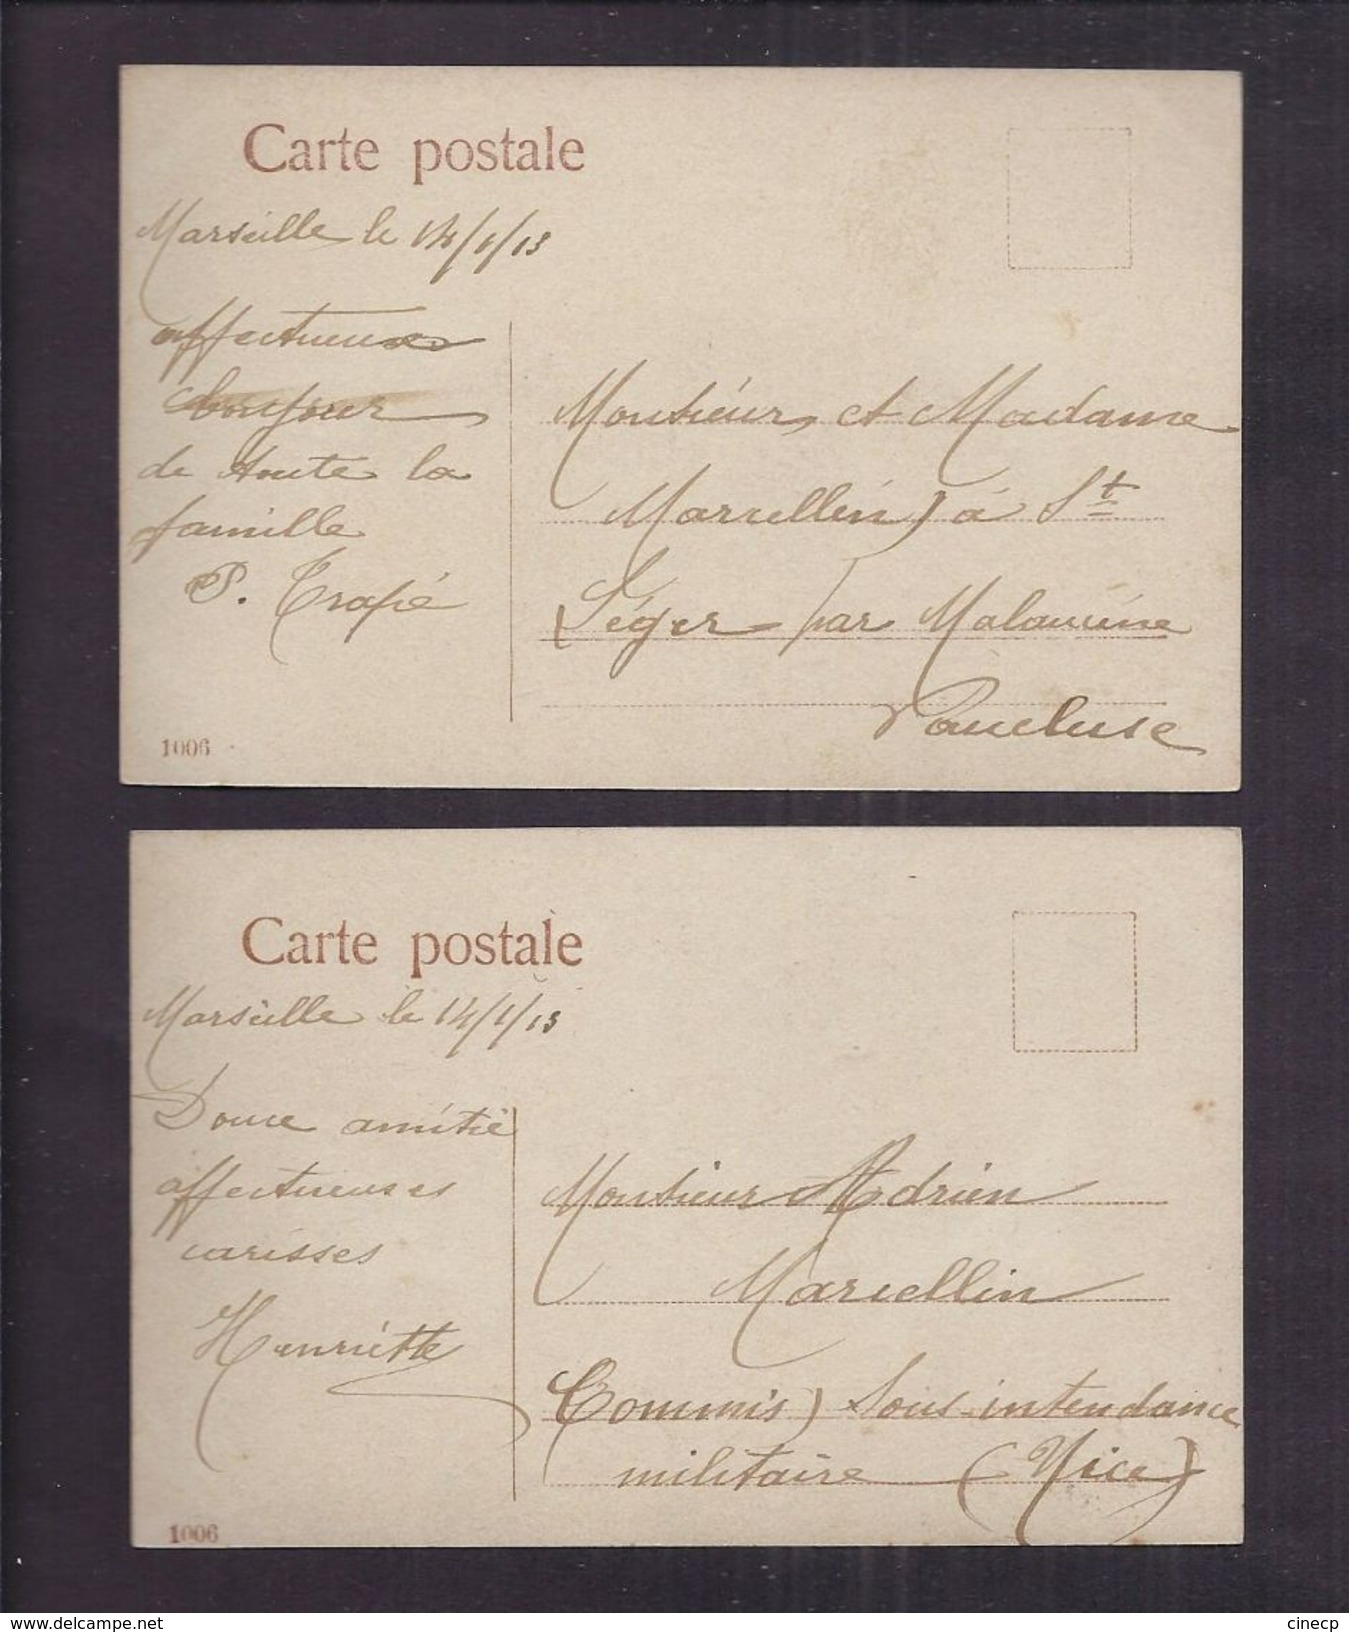 Carte postale
Marseille le 14/1/13
affectueux
bonjour
de toute la
famille
P. Trapé
Monsieur et Madame
Marcellin à St
Léger par Malaucène
Vaucluse
1006
Carte postale
Marseille le 14/1/13
Douce amitié
affectueuses
carisses
Henriette
Monsieur Adrien
Marcellin
Commis Sous-intendance
militaire (Nice)
1006
delcampe.net
cinecp